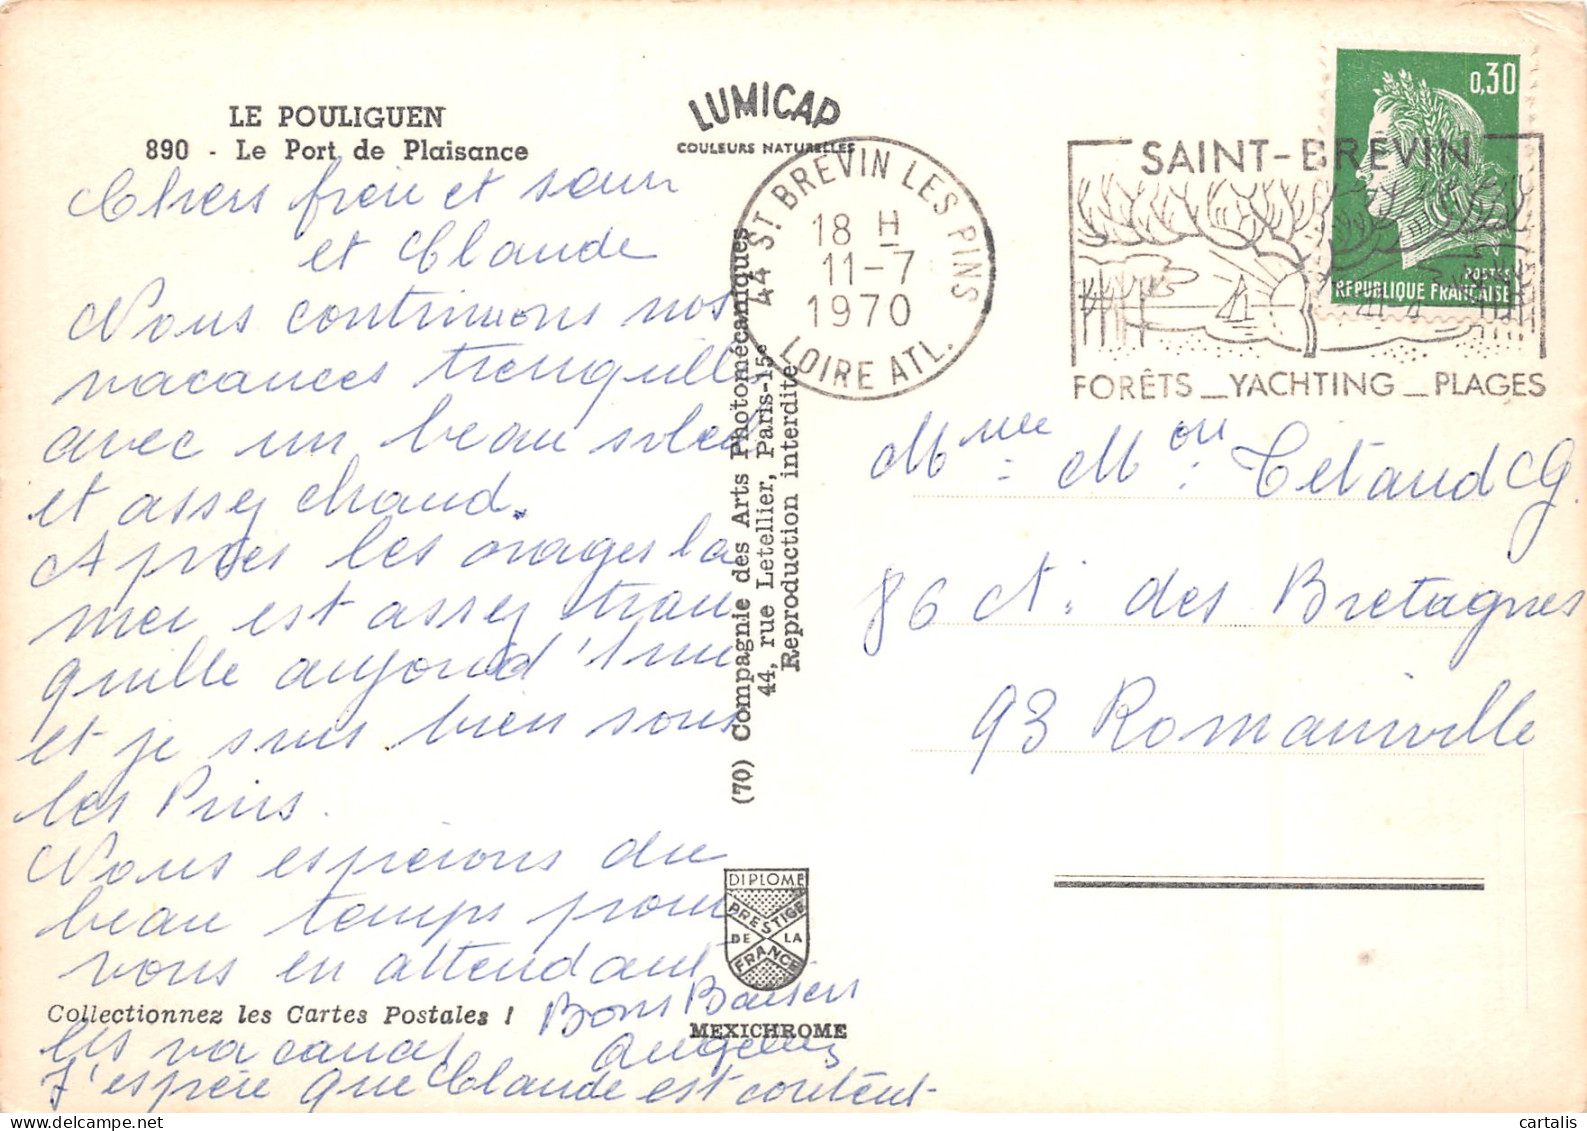 LE POULIGUEN
890 - Le Port de Plaisance
LUMICAP
COULEURS NATURELLES
Chers frère et sœur
et Claude
Nous continuons nos
vacances tranquilles
avec un beau soleil
et assez chaud.
Après les orages la
mer est assez tran
quille aujourd'hui
et je suis bien sous
les Pins.
Nous espérons du
beau temps pour
vous en attendant
Collectionnez les Cartes Postales !
les vacances
Bons Baisers
J'espère que Claude est content
44 ST BREVIN LES PINS
18 H
11-7
1970
LOIRE ATL.
SAINT-BREVIN
FORÊTS _ YACHTING _ PLAGES
0,30
POSTES
REPUBLIQUE FRANÇAISE
(70) Compagnie des Arts Photomécaniques
44, rue Letellier, Paris-15e
Reproduction interdite
DIPLOME
PRESTIGE
DE LA
FRANCE
MEXICHROME
Mme. Mr. Tétaud CG
86 Ct. des Bretagnes
93 Romainville
cartalis